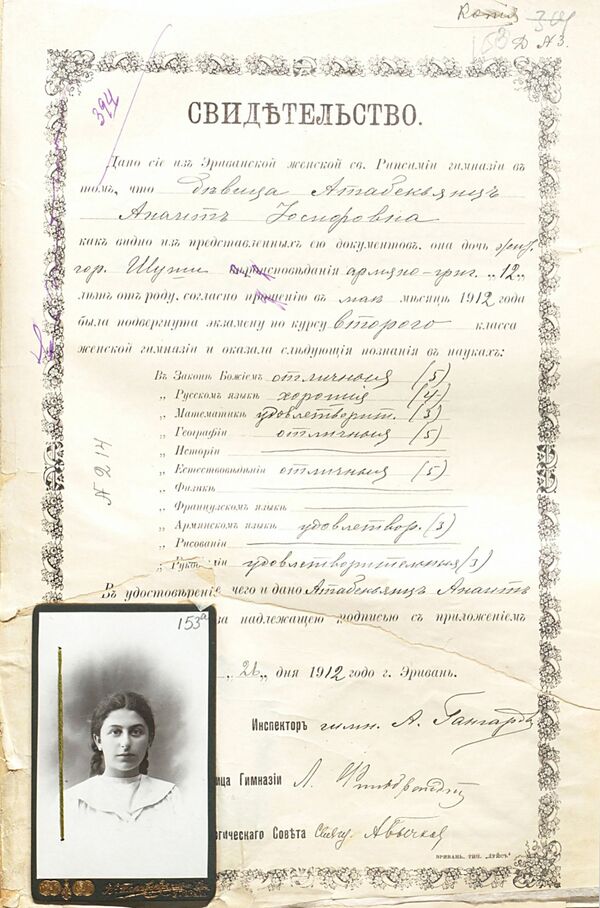 153 Д № 3.
394
СВИДѢТЕЛЬСТВО.
Дано сіе изъ Эриванской женской св. Рипсиміи гимназіи въ
томъ, что дѣвица Атабекьянцъ
Анаитъ Іосифовна
какъ видно изъ представленныхъ ею документовъ, она дочь
гор. Шуши вѣроисповѣданія армяно-григ. „12„
лѣтъ отъ роду, согласно прошенію въ маѣ мѣсяцѣ 1912 года
была подвергнута экзамену по курсу второго класса
женской гимназіи и оказала слѣдующія познанія въ наукахъ:
Въ Законѣ Божіемъ отличныя (5)
„ Русскомъ языкѣ хорошія (4)
„ Математикѣ удовлетворит. (3)
„ Географіи отличныя (5)
„ Исторіи
„ Естествовѣдѣніи отличныя (5)
„ Физикѣ
„ Французскомъ языкѣ
„ Армянскомъ языкѣ удовлетвор. (3)
„ Рисованіи
„ Рукодѣліи удовлетворительныя (3)
№ 214
Въ удостовѣреніе чего и дано Атабекьянцъ Анаитъ
за надлежащею подписью съ приложеніемъ
153а
„ 26 „ дня 1912 года г. Эривань.
Инспекторъ гимн. А.
ица Гимназіи Л.
гическаго Совѣта
ЭРИВАНЬ, ТИП. „ЛУЙСЪ“